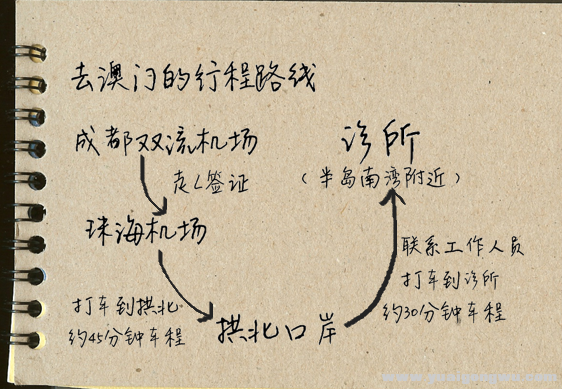 去澳门的行程路线
成都双流机场
走L签证
珠海机场
打车到拱北
约45分钟车程
拱北口岸
联系工作人员
打车到诊所
约30分钟车程
诊所
（半岛南湾附近）